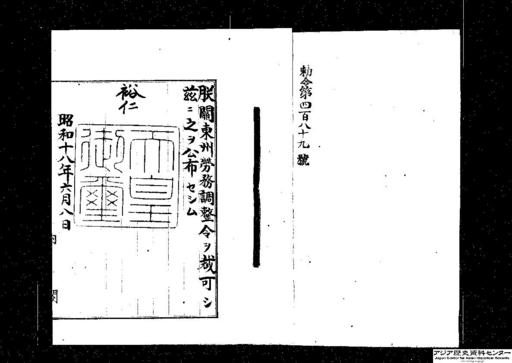 勅令第四百八十九號
朕關東州勞務調整令ヲ裁可シ
茲ニ之ヲ公布セシム
裕仁
天皇
御璽
昭和十八年六月八日
内閣
アジア歴史資料センター
Japan Center for Asian Historical Records